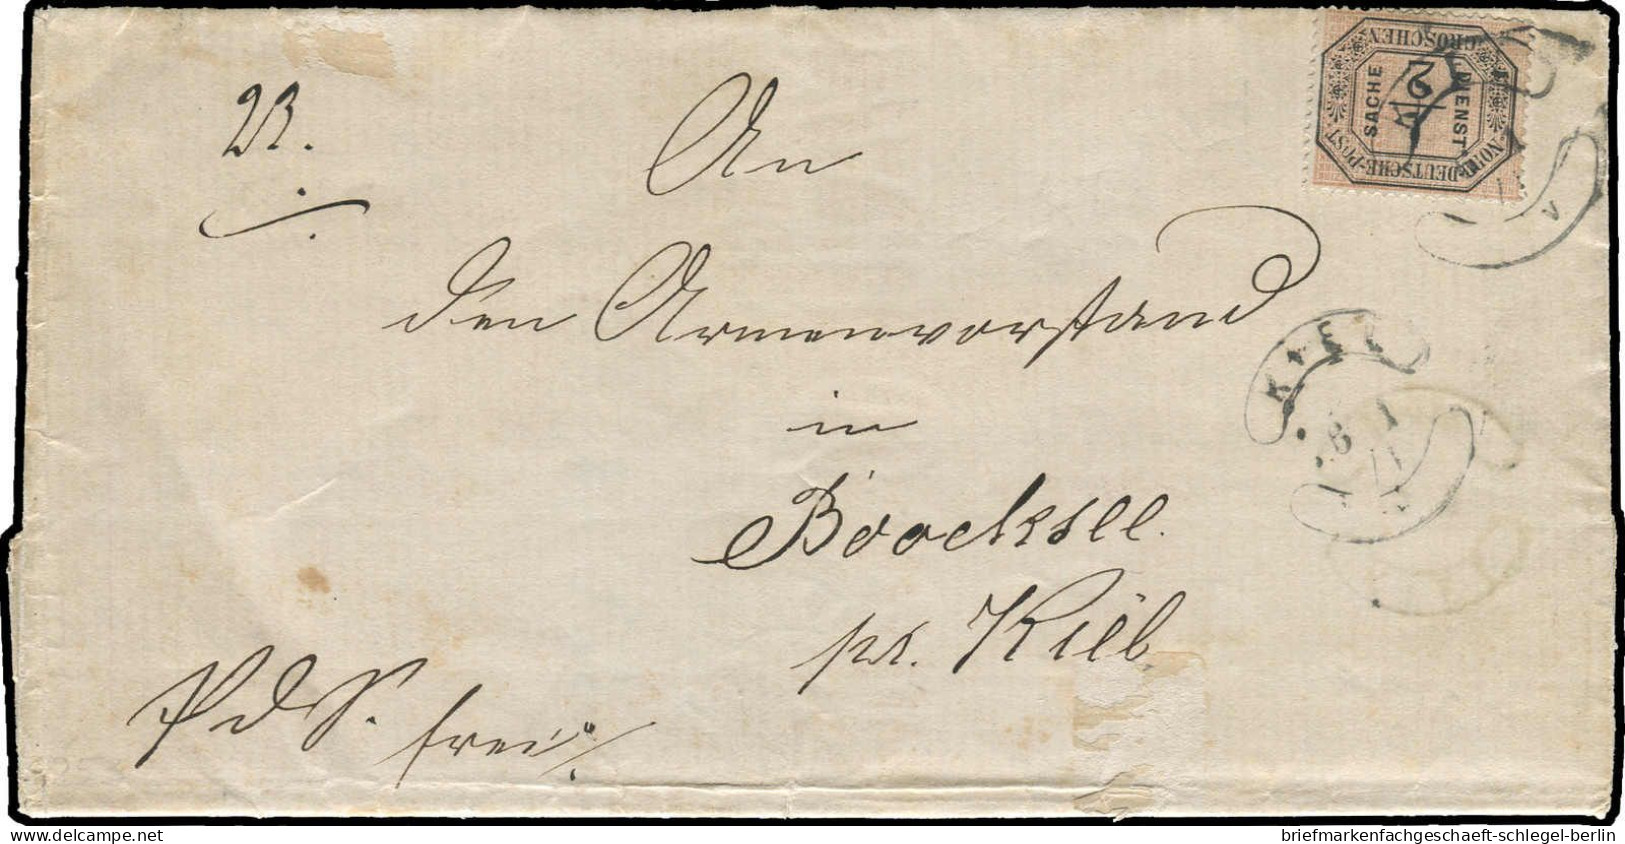 NORDDEUTSCHE-POST
GROSCHEN
2
DIENST
SACHE
An
den Armenvorstand
in
Boocksee
pr. Kiel
PdS. frei
KIEL
8 1
delcampe.net
briefmarkenfachgeschaeft-schlegel-berlin